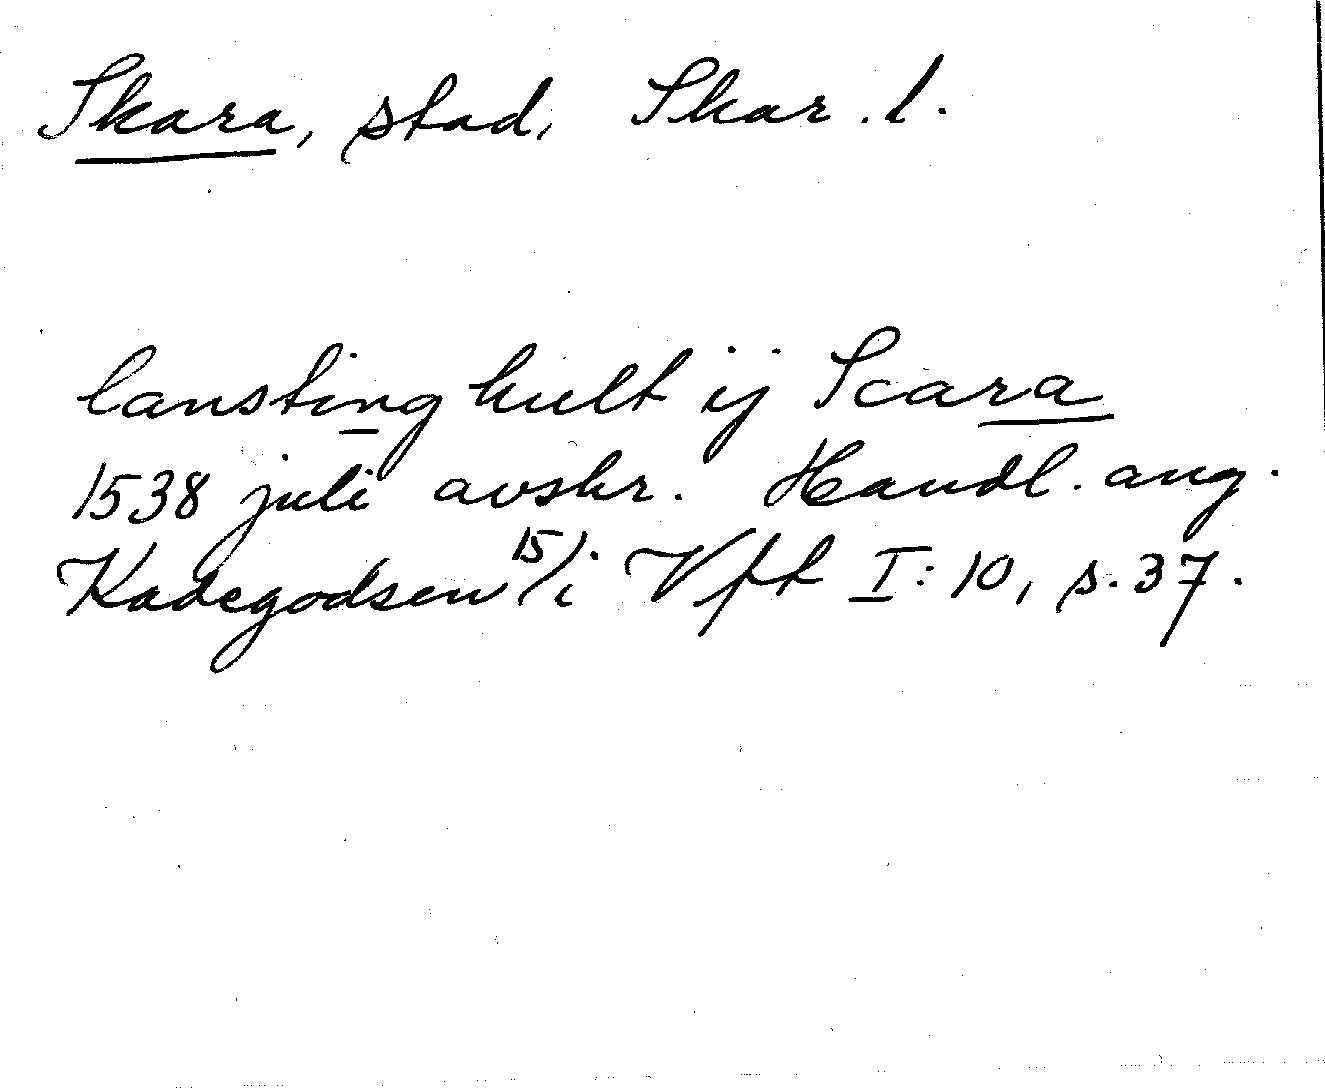 Skara, stad, Skar. l.
lansting hult ij Scara
1538 juli avskr. Handl. ang.
Kadegodsen 15/i Vft I: 10, s. 37.